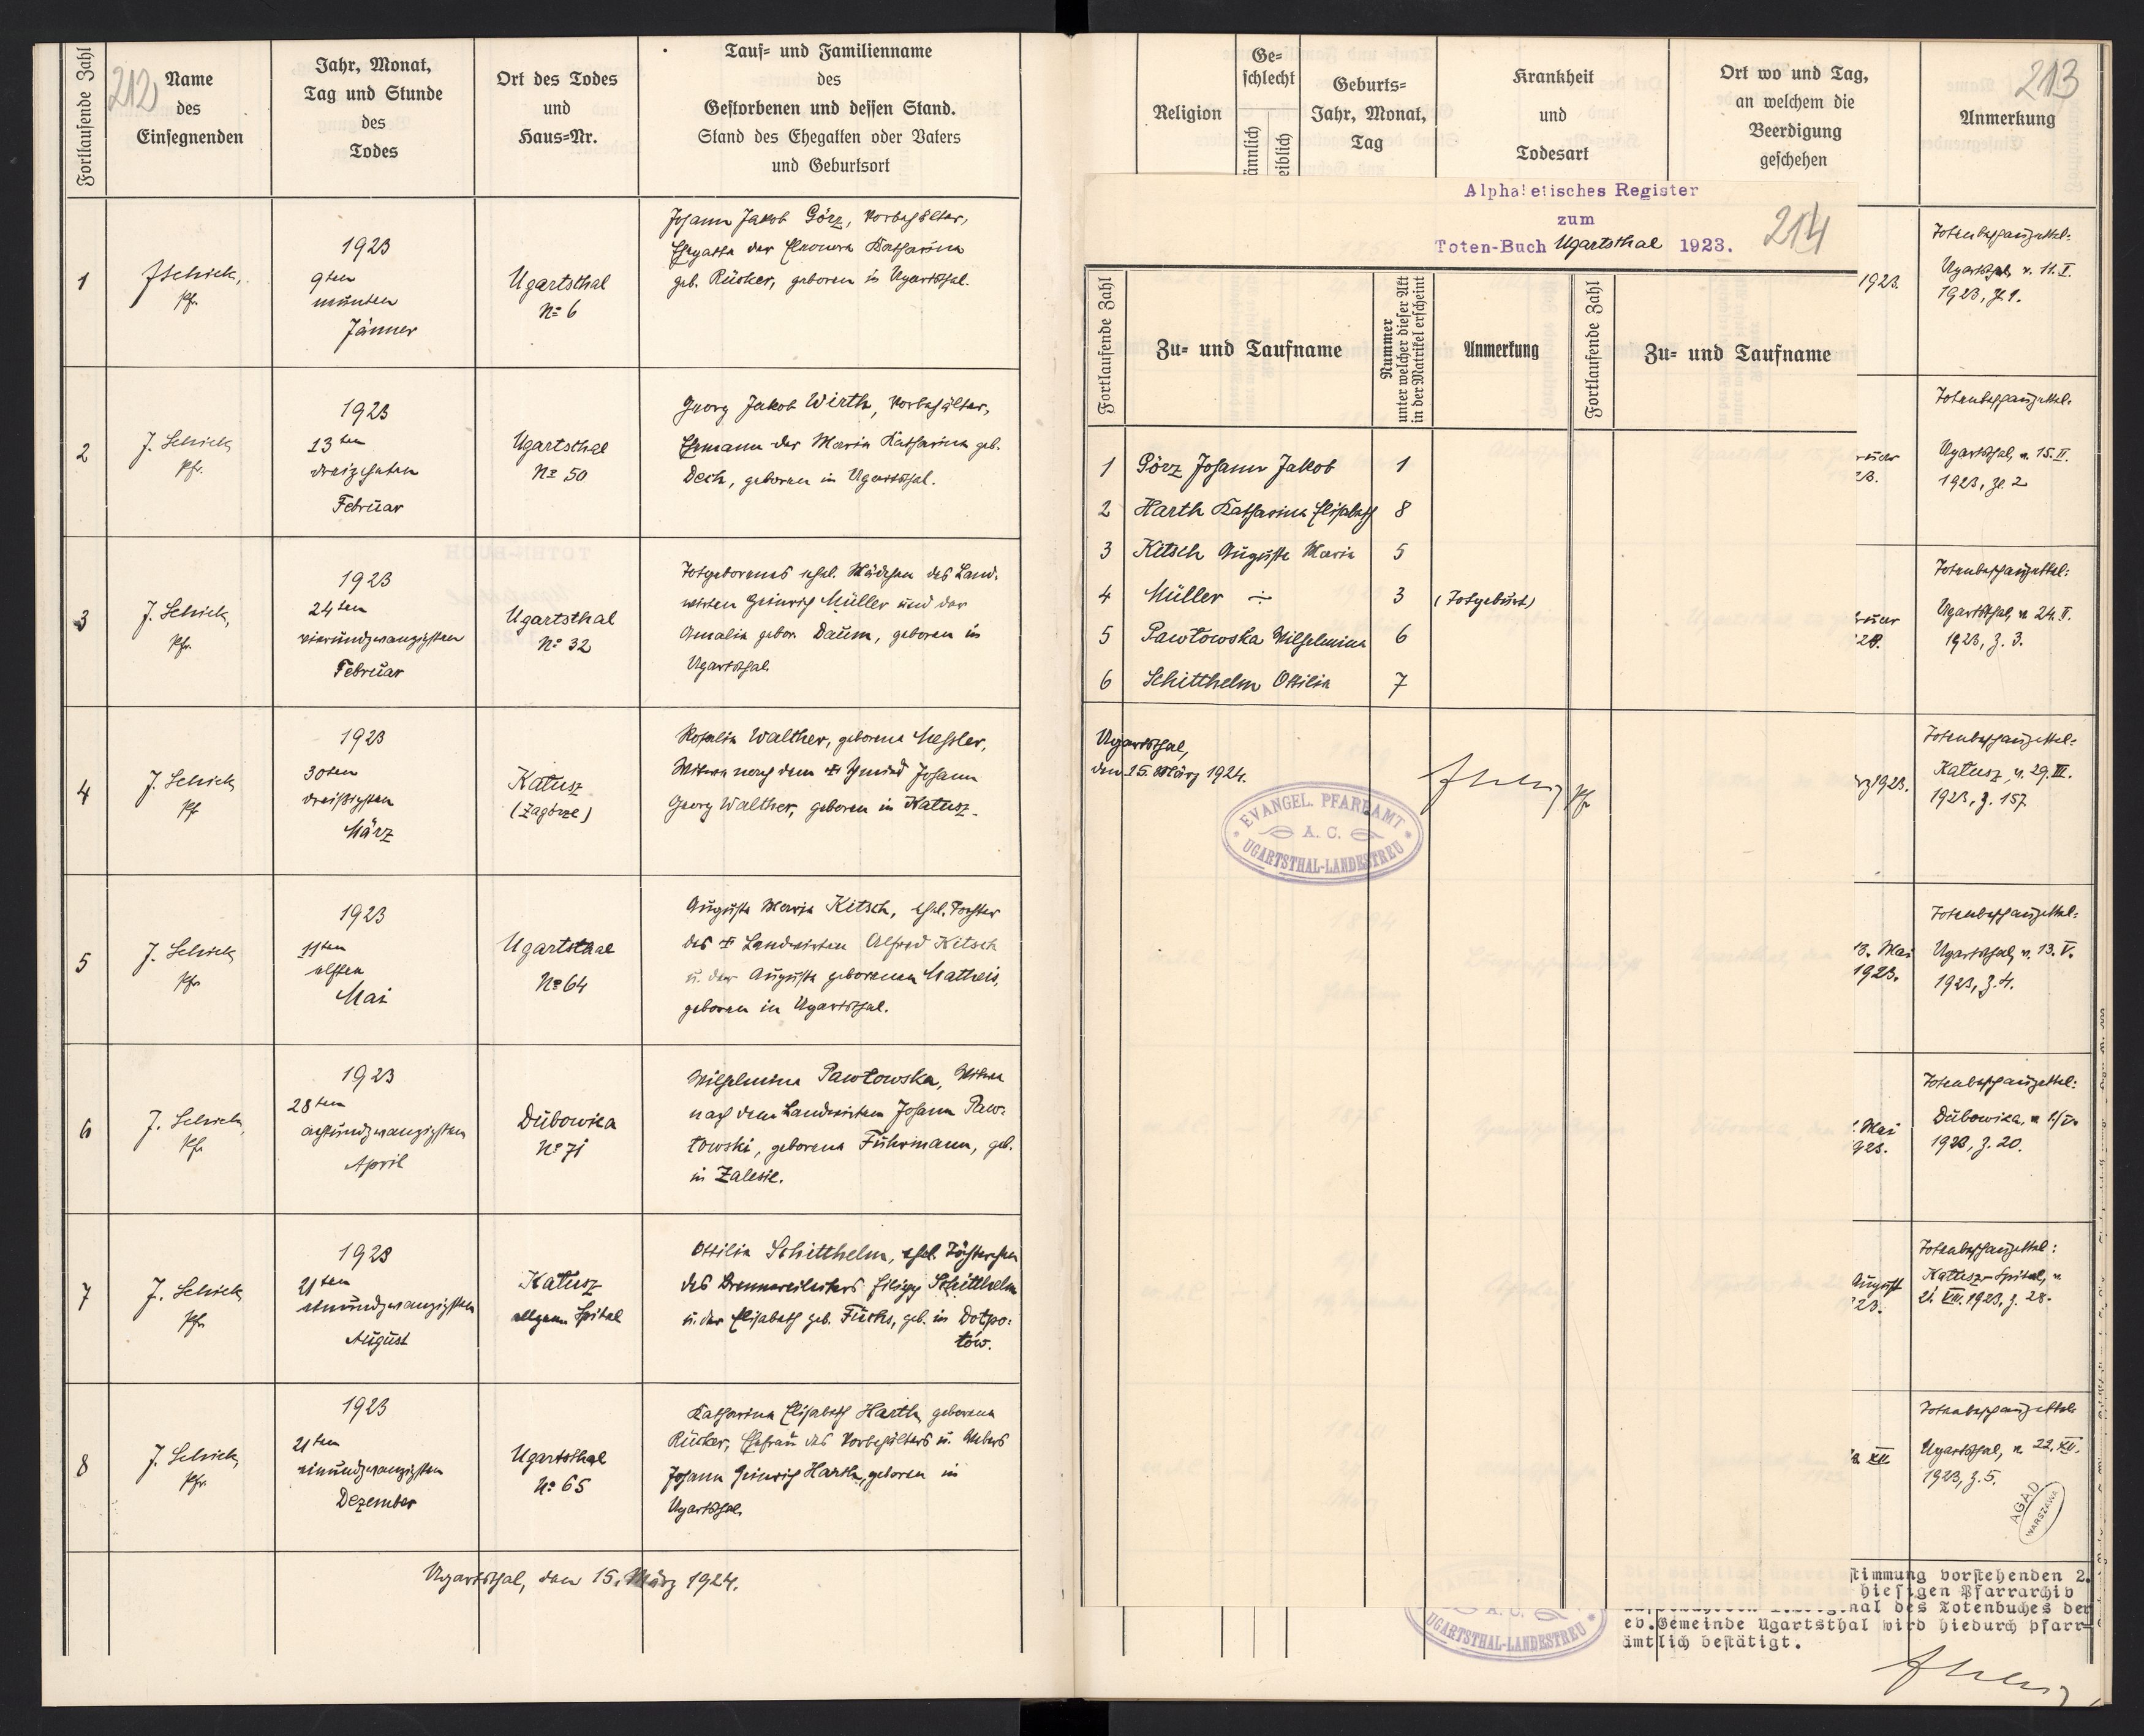 212
Fortlaufende Zahl
Name
des
Einsegnenden
Jahr, Monat,
Tag und Stunde
des
Todes
Ort des Todes
und
Haus=Nr.
Tauf= und Familienname
des
Gestorbenen und dessen Stand.
Stand des Ehegatten oder Vaters
und Geburtsort
1
J Schick,
Pfr.
1923
9ten
neunten
Jänner
Ugartsthal
No 6
Johann Jakob Görz, Vorbehälter,
Ehegatte der Eleonora Katharina
geb. Rücker, geboren in Ugartsthal.
2
J. Schick,
Pfr.
1923
13ten
dreizehnten
Februar
Ugartsthal
No 50
Georg Jakob Wirth, Vorbehälter,
Ehemann der Maria Katharina geb.
Dech, geboren in Ugartsthal.
3
J. Schick,
Pfr.
1923
24ten
vierundzwanzigsten
Februar
Ugartsthal
No 32
Totgeborenes ehel. Mädchen des Land-
wirten Heinrich Müller und der
Amalia gebor. Daum, geboren in
Ugartsthal.
4
J. Schick,
Pfr.
1923
30ten
dreißigsten
März
Kałusz
(Zagórze)
Rosalia Walther, geborene Messler,
Witwe nach dem Schmied Johann
Georg Walther, geboren in Kałusz.
5
J. Schick,
Pfr.
1923
11ten
elften
Mai
Ugartsthal
No 64
Auguste Maria Kitsch, ehel. Tochter
des Landwirten Alfred Kitsch
u. der Auguste geborenen Matheis,
geboren in Ugartsthal.
6
J. Schick,
Pfr.
1923
28ten
achtundzwanzigsten
April
Dubowica
No 71
Wilhelmina Pawłowska, Witwe
nach dem Landwirten Johann Paw-
łowski, geborene Fuhrmann, geb.
in Zalesie.
7
J. Schick,
Pfr.
1923
21ten
einundzwanzigsten
August
Kałusz
allgem. Spital
Ottilia Schitthelm, ehel. Töchterchen
des Brennereileiters Philipp Schitthelm
u. der Elisabeth geb. Fuchs, geb. in Dołpo-
tów.
8
J. Schick,
Pfr.
1923
21ten
einundzwanzigsten
Dezember
Ugartsthal
No 65
Katharina Elisabeth Harth, geborene
Rücker, Ehefrau des Vorbehälters u. Webers
Johann Heinrich Harth, geboren in
Ugartsthal.
Ugartsthal, den 15. März 1924.
Religion
Ge=
schlecht
ännlich
eiblich
Geburts=
Jahr, Monat,
Tag
Krankheit
und
Todesart
Ort wo und Tag,
an welchem die
Beerdigung
geschehen
213
Anmerkung
Alphabetisches Register
zum
Toten-Buch Ugartsthal 1923.
214
Fortlaufende Zahl
Zu= und Taufname
Nummer
unter welcher dieser Akt
in der Matrikel erscheint
Anmerkung
Fortlaufende Zahl
Zu= und Taufname
1 Görz Johann Jakob 1
2 Harth Katharina Elisabeth 8
3 Kitsch Auguste Maria 5
4 Müller ÷ 3 (Totgeburt)
5 Pawłowska Wilhelmina 6
6 Schitthelm Ottilia 7
Ugartsthal,
den 15. März 1924.
Pfr
EVANGEL. PFARRAMT
A. C.
UGARTSTHAL-LANDESTREU
1923.
Totenbeschauzettel:
Ugartsthal, v. 11. I.
1923, Z. 1.
Totenbeschauzettel:
Ugartsthal, v. 15. II.
1923, Z. 2
Totenbeschauzettel:
Ugartsthal, v. 24. II.
1923, Z. 3.
1923.
Totenbeschauzettel:
Kałusz, v. 29. III.
1923, Z. 157
13. Mai
1923.
Totenbeschauzettel:
Ugartsthal, v. 13. V.
1923, Z. 4.
Mai
923.
Totenbeschauzettel:
Dubowica, v. 1/V.
1923, Z. 20.
August
23.
Totenbeschauzettel:
Kałusz-Spital, v.
21. VIII. 1923, Z. 28.
XII
Totenbeschauzettel:
Ugartsthal, v. 22. XII.
1923, Z. 5.
AGAD
WARSZAWA
stimmung vorstehenden 2.
hiesigen Pfarrarchiv
nal des Totenbuches der
ev.Gemeinde Ugartsthal wird hiedurch pfarr=
ämtlich bestätigt.
A. C.
UGARTSTHAL-LANDESTREU